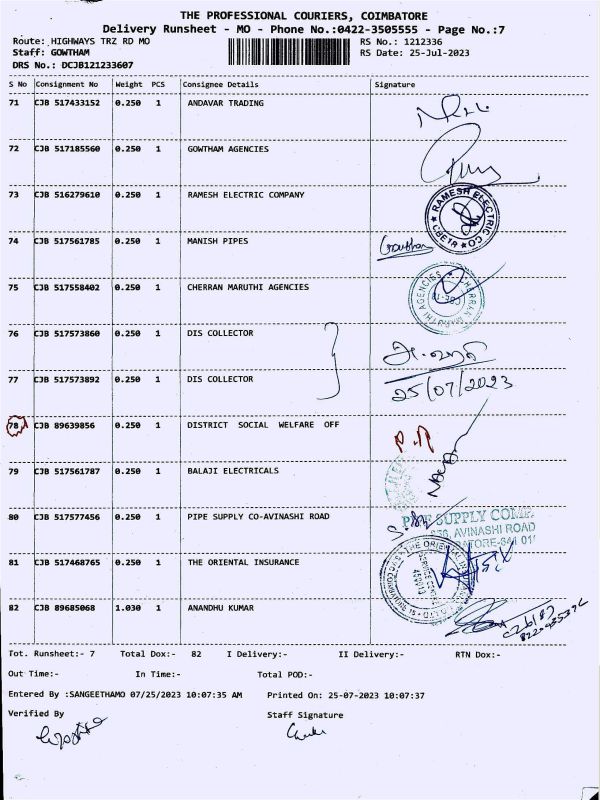 THE PROFESSIONAL COURIERS, COIMBATORE
Delivery Runsheet - MO - Phone No.:0422-3505555 - Page No.:7
Route: HIGHWAYS TRZ RD MO RS No.: 1212336
Staff: GOWTHAM RS Date: 25-Jul-2023
DRS No.: DCJB121233607
S No Consignment No Weight PCS Consignee Details Signature
71 CJB 517433152 0.250 1 ANDAVAR TRADING
72 CJB 517185560 0.250 1 GOWTHAM AGENCIES
73 CJB 516279610 0.250 1 RAMESH ELECTRIC COMPANY
RAMESH ELECTRIC CO
74 CJB 517561785 0.250 1 MANISH PIPES
75 CJB 517558402 0.250 1 CHERRAN MARUTHI AGENCIES
76 CJB 517573860 0.250 1 DIS COLLECTOR
77 CJB 517573892 0.250 1 DIS COLLECTOR
25/07/2023
78 CJB 89639856 0.250 1 DISTRICT SOCIAL WELFARE OFF
79 CJB 517561787 0.250 1 BALAJI ELECTRICALS
80 CJB 517577456 0.250 1 PIPE SUPPLY CO-AVINASHI ROAD
SUPPLY COMP
AVINASHI ROAD
81 CJB 517468765 0.250 1 THE ORIENTAL INSURANCE
THE ORIENTAL
82 CJB 89685068 1.030 1 ANANDHU KUMAR
Tot. Runsheet:- 7 Total Dox:- 82 I Delivery:- II Delivery:- RTN Dox:-
Out Time:- In Time:- Total POD:-
Entered By :SANGEETHAMO 07/25/2023 10:07:35 AM Printed On: 25-07-2023 10:07:37
Verified By Staff Signature